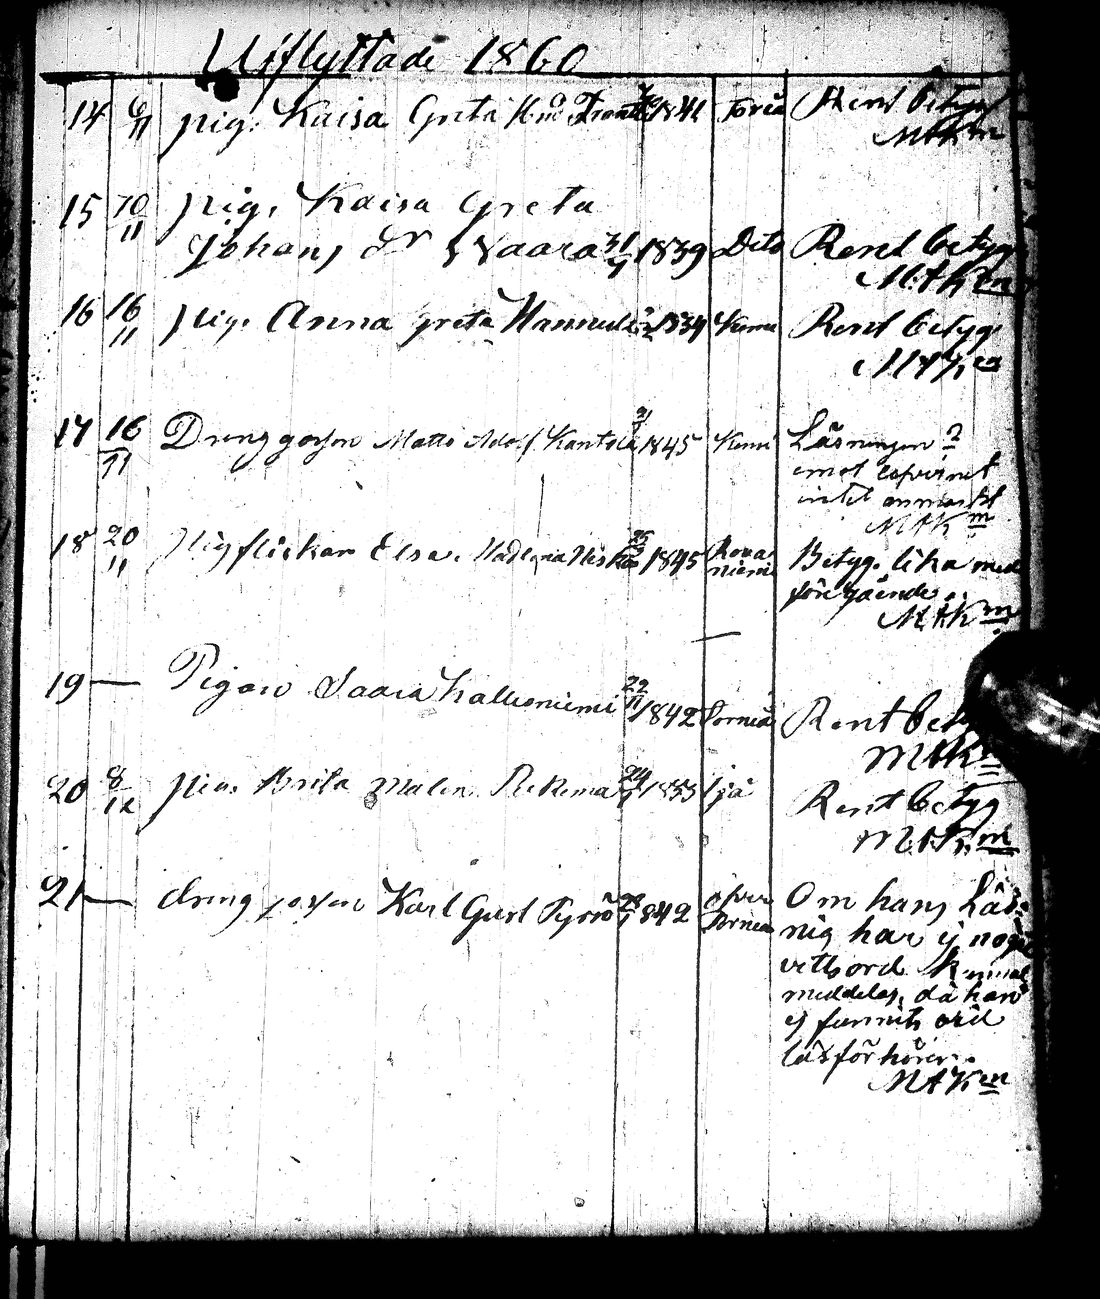 Utflyttade 1860
14 6/11 pig. Kaisa Greta 1841 Torneå Rent betyg
MAKm
15 10/11 pig. Kaisa Greta
Johans Dr Waara 31/7 1839 Dito Rent betyg
MAKm
16 16/11 pig. Anna Greta Hannula 1834 Kemi Rent betyg
MAKm
17 16/11 Dreng gossen Matts Adolf Kantola 1845 Kemi Läsningen ?
emot
intet anmärkt
MAKm
18 20/11 Pigflickan Elsa 1845 Rova Betyg lika med
niemi föregående
MAKm
19 — Pigan Saara Kallioniemi 22/11 1842 Torneå Rent
MAKm
20 8/12 pig. Brita Malen 24 Ijå Rent betyg
MAKm
21 — dreng gossen Karl Gust 28 1842 Öfver Om hans Läs-
Torneå nig har ej något
vittsord
meddelas, då han
ej funnits vid
läsförhören.
MAKm